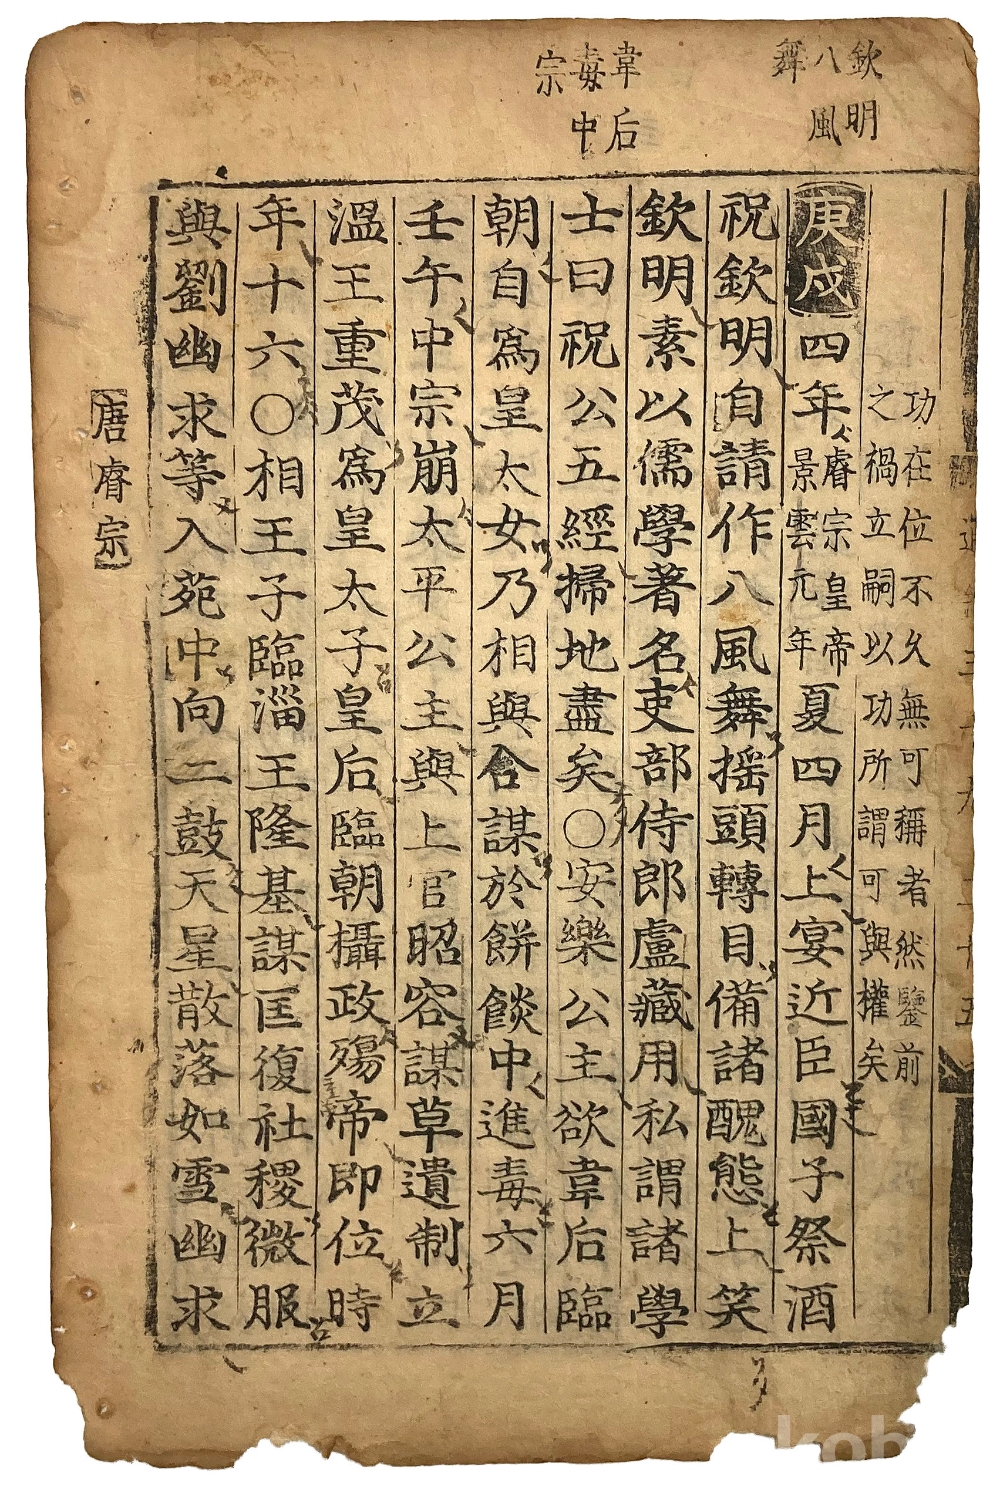 欽明
八風
舞
韋后
毒中
宗
功在位不久無可稱者然鑒前
之禍立嗣以功所謂可與權矣
庚戌四年睿宗皇帝景雲元年夏四月上宴近臣國子祭酒
祝欽明自請作八風舞搖頭轉目備諸醜態上笑
欽明素以儒學著名吏部侍郎盧藏用私謂諸學
士曰祝公五經掃地盡矣〇安樂公主欲韋后臨
朝自爲皇太女乃相與合謀於餅餤中進毒六月
壬午中宗崩太平公主與上官昭容謀草遺制立
溫王重茂爲皇太子皇后臨朝攝政殤帝即位時
年十六〇相王子臨淄王隆基謀匡復社稷微服
與劉幽求等入苑中向二鼓天星散落如雪幽求
唐睿宗
kob